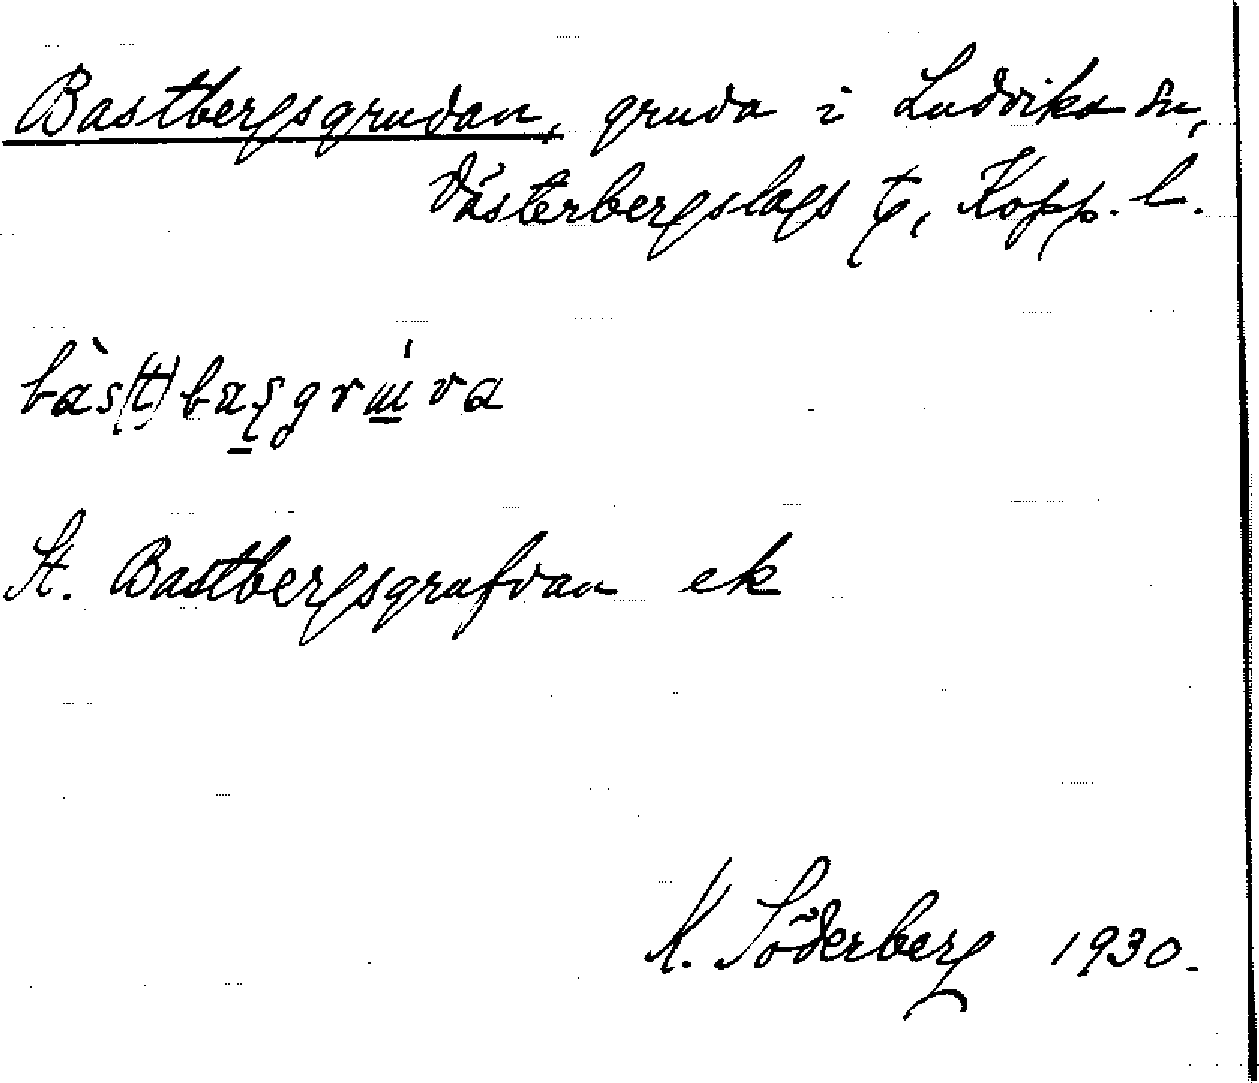 Bastbergsgruvan, gruva i Ludvika sn,
Västerbergslags tg, Kopp. l.
bàs(t)bærsgrɯ́va
St. Bastbergsgrufvan ek
K. Söderberg 1930.